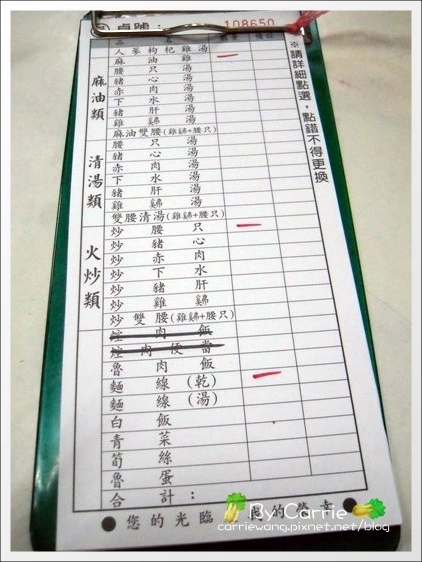 桌號： 108650
品
人蔘枸杞雞湯
麻油類
麻油雞
腰只湯
豬心湯
赤肉湯
下水湯
豬肝湯
雞湯
麻油雙腰(雞+腰只)
清湯類
腰只湯
豬心湯
赤肉湯
下水湯
豬肝湯
雞湯
雙腰清湯(雞+腰只)
火炒類
炒腰只
炒豬心
炒赤肉
炒下水
炒豬肝
炒雞
炒雙腰(雞+腰只)
肉飯
肉便當
魯肉飯
麵線(乾)
麵線(湯)
白飯
青菜
筍絲
魯蛋
合計：
您的光臨 我的榮幸
※請詳細點選，點錯不得更換
By Carrie
carriewang.pixnet.net/blog